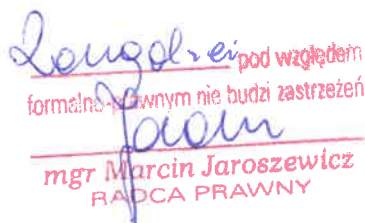 Zarządzenie pod względem
formalno-prawnym nie budzi zastrzeżeń
mgr Marcin Jaroszewicz
RADCA PRAWNY